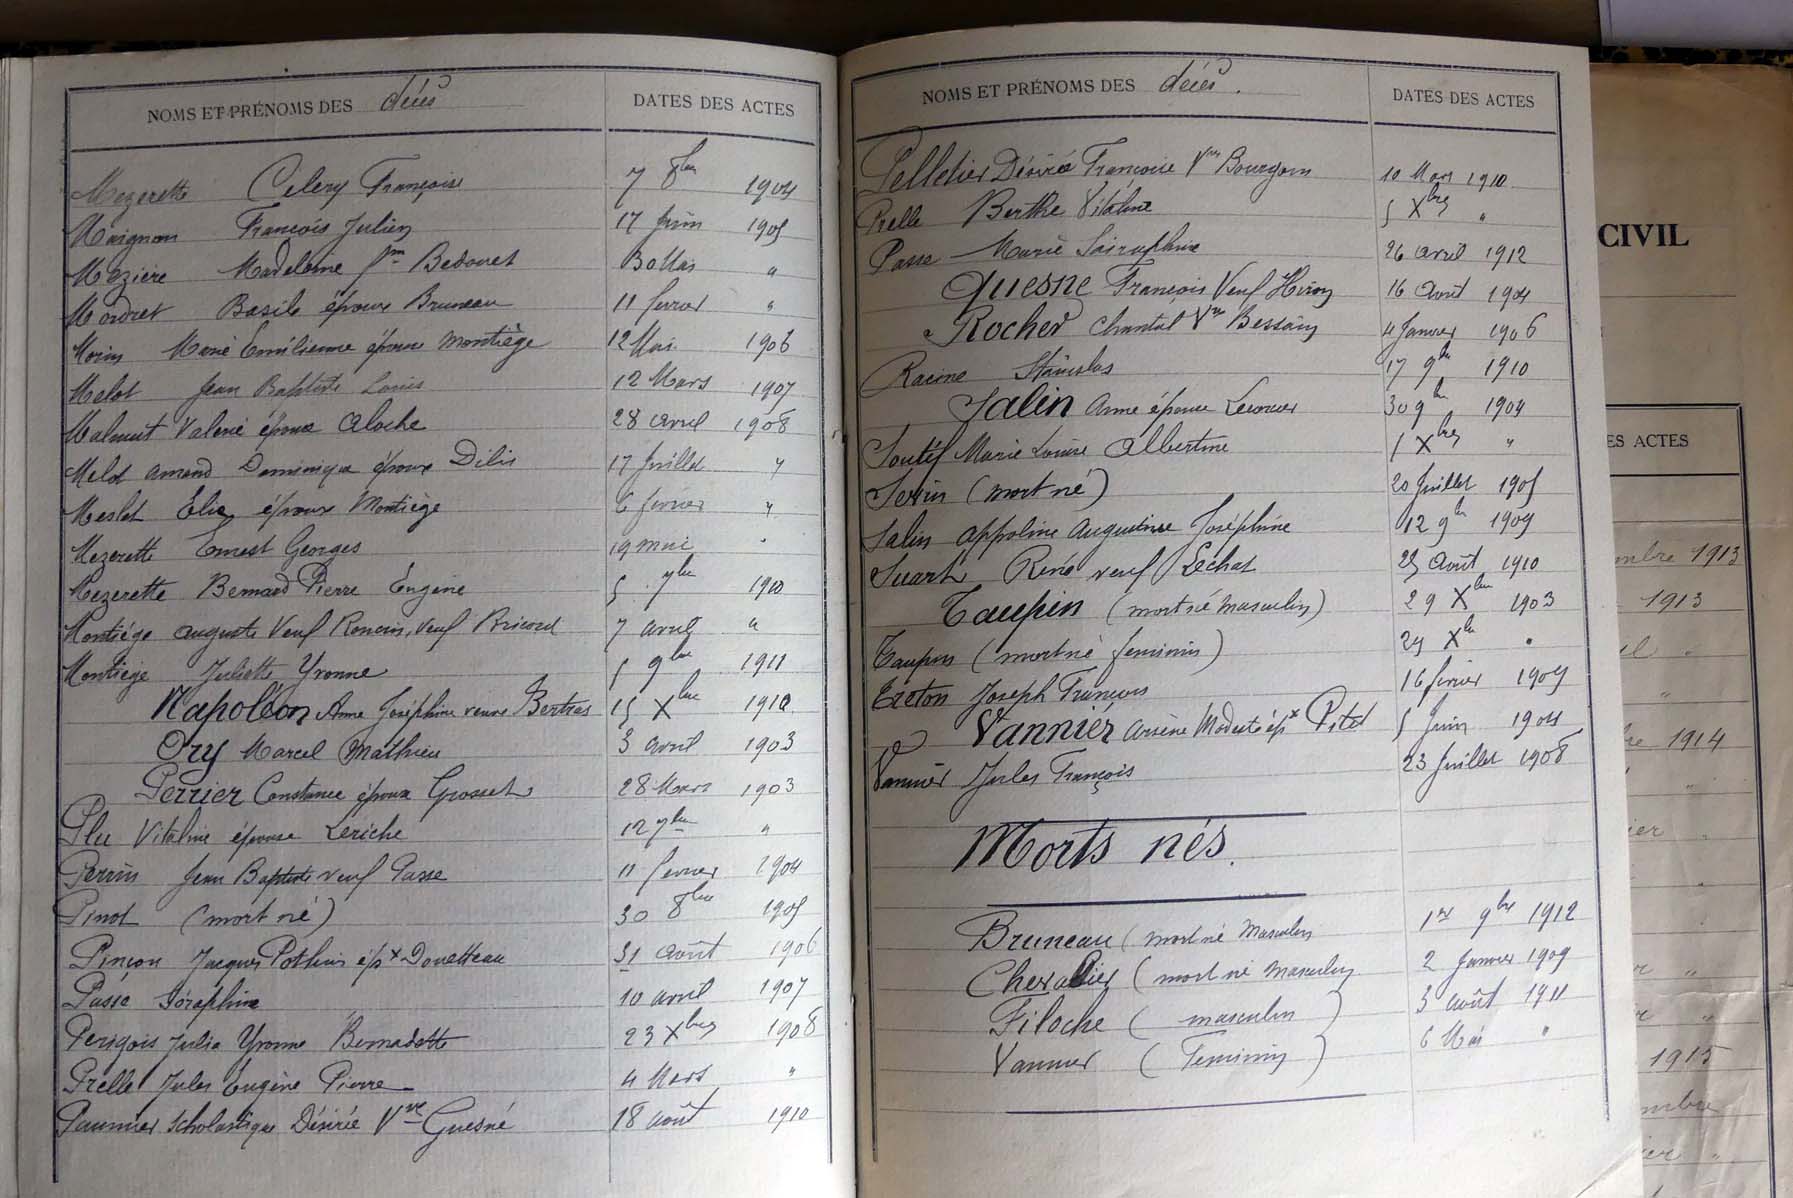 NOMS ET PRÉNOMS DES décès DATES DES ACTES
Mezerette Célery Françoise 7 8bre 1904
Maignan François Julien 17 Juin 1905
Mézière Madeleine fme Bedouet 30 Mai "
Mordret Basile époux Bruneau 11 février "
Morin Marie Emilienne épouse Montiège 12 Mai 1906
Melot Jean Baptiste Louis 12 Mars 1907
Malmut Valerie épouse Aloche 28 Avril 1908
Melot Amand Dominique époux Dilis 17 Juillet "
Meslet Elie époux Montiège 6 février "
Mezerette Ernest Georges 19 mai "
Mezerette Bernard Pierre Eugène 5 7bre 1910
Montiége Auguste Veuf Roncin, veuf Bricard 7 avril "
Montiège Juliette Yvonne 5 9bre 1911
Napoléon Anne Joséphine veuve Bertras 15 Xbre 1910
Ory Marcel Mathieu 3 avril 1903
Perrier Constance épouse Grosset 28 Mars 1903
Plu Vitaline épouse Leriche 12 7bre "
Perrin Jean Baptiste veuf Passe 11 février 1904
Pinot (mort né) 30 8bre 1905
Pinçon Jacques Pothin épx Douetteau 31 Août 1906
Passe Séraphine 10 avril 1907
Perigois Julia Yvonne Bernadette 23 Xbres 1908
Prelle Jules Eugène Pierre 4 Mars "
Paumier Scholastique Désirée Vve Guesné 18 août 1910
NOMS ET PRÉNOMS DES décès. DATES DES ACTES
Pelletier Désirée Françoise Vve Bourgoin 10 Mars 1910
Prelle Berthe Vitaline 5 Xbres "
Passe Marie Sairaphine 26 avril 1912
Quesne François Veuf Hivon 16 Août 1904
Rocher Chantal Vve Bessain 4 Janvier 1906
Racine Stanislas 17 9bre 1910
Salin Anne épouse Lecornier 30 9bre 1904
Soutif Marie Louise Albertine 1 Xbres "
Serin (mort né) 20 Juillet 1905
Salin Appoline Augustine Joséphine 12 9bre 1909
Suart René veuf Lechat 25 Août 1910
Taupin (mort né masculin) 29 Xbre 1903
Taupin (mort né feminin) 29 Xbre "
Treton Joseph François 16 février 1909
Vannier Arsène Modeste épx Pitel 5 Juin 1904
Vannier Jules François 23 Juillet 1908
Morts nés.
Bruneau (mort né Masculin 1er 9bre 1912
Chevallier (mort né masculin 2 Janvier 1909
Filoche (masculin) 3 août 1911
Vannier (Feminin) 6 Mai "
CIVIL
ES ACTES
mbre 1913
1913
1914
1915
mbre